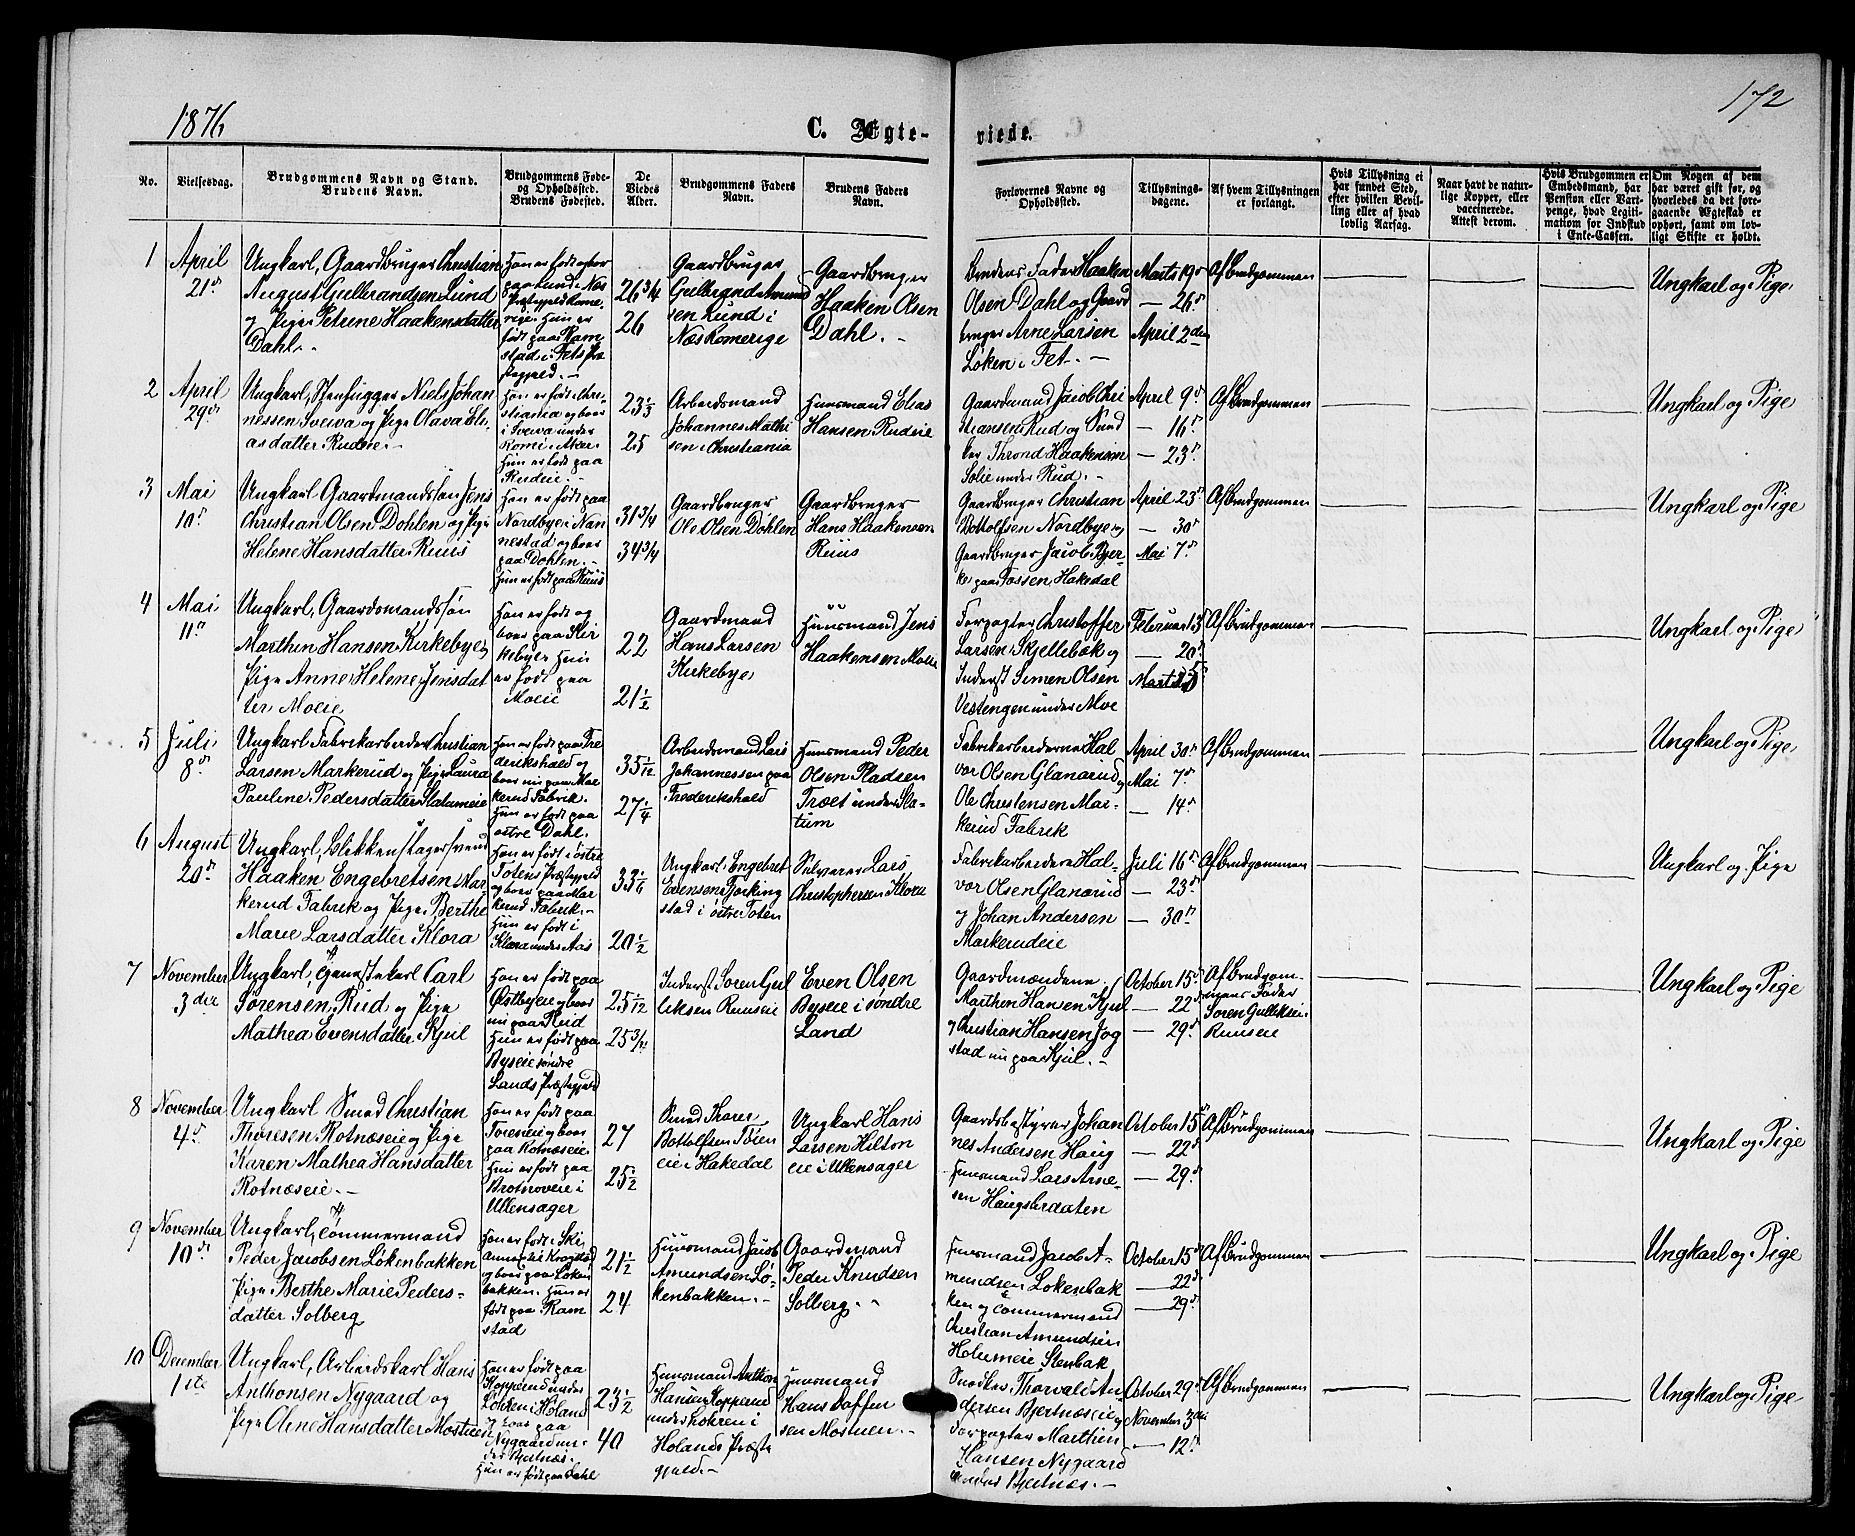 1876
172
C. Ægte-
viede.
No.
Vielsesdag.
Brudgommens Navn og Stand.
Brudens Navn.
Brudgommens Føde-
og Opholdssted.
Brudens Fødested.
De
Viedes
Alder.
Brudgommens Faders
Navn.
Brudens Faders
Navn.
Forlovernes Navne og
Opholdssted.
Tillysnings-
dagene.
Af hvem Tillysningen
er forlangt.
Hvis Tillysning ei
har fundet Sted,
efter hvilken Bevil-
ling eller af hvad
lovlig Aarsag.
Naar havt de natur-
lige Kopper, eller
vaccinerede.
Attest derom.
Hvis Brudgommen er
Embedsmand, har
Pension eller Vart-
penge, hvad Legiti-
mation for Indskud
i Enke-Cassen.
Om Nogen af dem
har været gift før, og
hvorledes da det fore-
gaaende Ægteskab er
ophørt, samt om lov-
ligt Skifte er holdt.
1
April
21de
Ungkarl, Gaardbruger Christian
August Gulbrandsen Lund
og Pige Petrine Haakensdatter
Dahl.
Han er født og bor
paa Lund i Næs
Præstegjeld Rome-
rige. Hun er
født paa Ram
stad i Fets Præ
stegjeld.
26 3/4
26
Gaardbruger
Gulbrand Amund
sen Lund i
Næs Romerige
Gaardbruger
Haaken Olsen
Dahl.
Brudens Fader Haaken
Olsen Dahl og Gaard
bruger Arne Larsen
Løken i Fet.
Marts 19de
— 26de
April 2den
Af Brudgommen
Ungkarl og Pige
2
April
29de
Ungkarl, Stenhugger Niels Johan
nessen Sveiva og Pige Olava Eli-
asdatter Rudeie.
Han er født i Chri-
stiania og boer
i Sveiva under
Romi i Aker.
Hun er født paa
Rudeie.
23 1/3
25
Arbeidsmand
Johannes Mathi
sen i Christiania
Huusmand Elias
Hansen Rudeie
Gaardmand Jacob Chri
stiansen Rud og Smed
Thrond Haakensen
Solie under Rud.
April 9de
— 16de
— 23de
Af Brudgommen
Ungkarl og Pige
3
Mai
10de
Ungkarl Gaardmandssøn Jens
Christian Olsen Dohlen og Pige
Helene Hansdatter Ruus
Han er født paa
Nordbye i Nan
nestad og boer
paa Dohlen.
Hun er født paa Ruus
31 3/4
34 3/4
Gaardbruger
Ole Olsen Dohlen
Gaardbruger
Hans Haakensen
Ruus
Gaardbruger Christian
Bottolfsen Nordbye og
Gaardbruger Jacob Bjer-
ke paa Tossen Hakedal
April 23de
— 30de
Mai 7de
Af Brudgommen
Ungkarl og Pige
4
Mai
11de
Ungkarl, Gaardsmandssøn
Marthin Hansen Kirkebye og
Pige Anne Helene Jensdat
ter Moeie
Han er født og
boer paa Kir
kebye. Hun
er født paa
Moeie
22
21 1/2
Gaardmand
Hans Larsen
Kirkebye
Huusmand Jens
Haakensen Moeie
Forpagter Christoffer
Larsen Skjellebæk og
Inderst Simen Olsen
Vestengen under Moe
Februar 13de
— 20de
Marts 5te
Af Brudgommen
Ungkarl og Pige
5
Juli
8de
Ungkarl Fabrikarbeider Christian
Larsen Markerud og Pige Laura
Pauline Pedersdatter Slatumeie
Han er født paa Fre
derikshald og
boer nu paa Mar
kerud Fabrik.
Hun er født paa
østre Dahl.
35 5/12
27 1/4
Arbeidsmand Lars
Johannessen paa
Frederikshald
Huusmand Peder
Olsen Pladsen
Træet under Sla-
tum
Fabrikarbeiderne Hal
vor Olsen Glanerud og
Ole Christensen Mar-
kerud Fabrik
April 30de
Mai 7de
— 14de
Af Brudgommen
Ungkarl og Pige
6
August
20de
Ungkarl, Blikkenslagersvend
Haaken Engebretsen Mar-
kerud Fabrik og Pige Berthe
Marie Larsdatter Klora
Han er født i østre
Totens Præstegjeld
og boer paa Mar
kerud Fabrik.
Hun er født i
Klora under Aas
33 1/6
20 1/2
Ungkarl Engebret
Evensen Gjøvikng
stad i østre Toten
Selveier Lars
Christophersen Kloeie
Fabrikarbeiderne Hal-
vor Olsen Glanerud
og Johan Andersen
Markerudeie
Juli 16de
— 23de
— 30de
Af Brudgommen
Ungkarl og Pige
7
November
3die
Ungkarl, Tjenestekarl Carl
Sørensen Rud og Pige
Mathea Evensdatter Kjul
Han er født paa
Østbyeie og boer
nu paa Rud
Hun er født paa
Byseie søndre
Lands Præstegjeld
25 5/12
25 3/12
Inderst Søren Gul
liksen Ruuseie
Even Olsen
Byseie i søndre
Land
Gaardmændene
Marthin Hansen Kjul
og Christian Hansen Jog
stad nu paa Kjul.
October 15de
— 22de
— 29de
Af Brudgom-
mens Fader
Søren Gulliksen
Ruuseie
Ungkarl og Pige
8
November
4de
Ungkarl Smed Christian
Thoresen Rotnæseie og Pige
Karen Mathea Hansdatter
Rotnæseie.
Han er født paa
Toreseie og boer
paa Rotnæseie.
Hun er født paa
Brotnoveie i
Ullensager
27
25 1/2
Smed Thorer
Bottolfsen Tøien
eie i Hakedal
Ungkarl Hans
Larsen Hilton
eie i Ullensager
Gaardsbestyrer Johan
nes Andersen Haug
Huusmand Lars Arne-
sen Haugsbraaten
October 15de
— 22de
— 29de
Af Brudgommen
Ungkarl og Pige
9
November
10de
Ungkarl, Tømmermand
Peder Jacobsen Løkenbakken
Pige Berthe Marie Peders-
datter Solberg
Han er født i Ski
Kraagstad
og boer paa Løken
bakken. Hun er
født paa Ram
stad
21 1/2
24
Huusmand Jacob
Amundsen Lø-
kenbakken.
Gaardmand
Peder Knudsen
Solberg.
Huusmand Jacob A-
mundsen Løkenbak
ken og Tømmermand
Christian Amundsen
Holumeie Stenbak
October 15de
— 22de
— 29de
Af Brudgommen
Ungkarl og Pige
10
December
1ste
Ungkarl, Arbeidskarl Hans
Anthonsen Nygaard og
Pige Oline Hansdatter Mostuen
Han er født paa
Kopperud under
Løken i Høland
og boer paa
Nygaard un-
der Bjertnæs.
Hun er født paa Dahl
23 1/2
40
Huusmand Anthon
Hansen Kopperud
under Løkren i
Hølands Præste
gjeld.
Huusmand
Hans Paffen
sen Mostuen.
Snedker Thorvald An
dersen Bjertnæseie og
Forpagter Marthin
Hansen Nygaard
under Bjertnæs.
October 29de
November 3die
— 12te
Af Brudgommen
Ungkarl og Pige